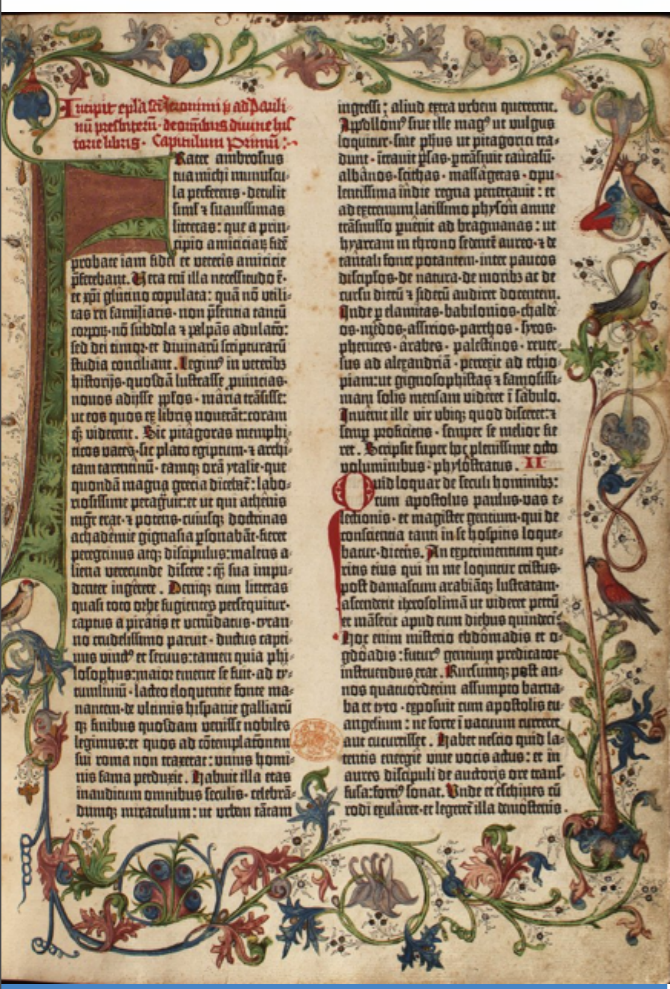 Incipit epistola sancti Jeronimi ad Pauli
nū presbiterū de omnibus divine his
torie libris. Capitulum Primū.
Frater ambrosius
tua michi munuscu
la perferens · detulit
siml' ⁊ suauissimas
litteras: que a prin
cipio amiciciaꝝ fidē
probate iam fidei et veteris amicicie
pferebant. Uera em̄ illa necessitudo ē ·
et xp̄i glutino copulata: quā nō vtili
tas rei familiaris · non p̄sentia tantū
corporꝫ · nō subdola ⁊ palpās adulatō:
sed dei timor et diuinarū scripturarū
studia conciliant. Legimꝰ in veteribꝫ
historijs · quosdā lustrasse puincias ·
nouos adijsse pplos · maria trāsisse:
ut eos quos ex libris nouerāt: coram
qꝫ viderent. Sic pitagoras memphi
ticos vates · sic plato egiptum · ⁊ archi
tam tarentinū · eamqꝫ orā ytalie · que
quondā magna grecia dicebat᷑: labo
riosissime peragrauit: et ut qui athenis
mgr̄ erat · ⁊ potens · cuiusqꝫ doctrinas
achademie gignasia psonabāt · fieret
peregrinus atqꝫ discipulus: malens a
liena verecunde discere: qꝫ sua impu
denter ingerere. Deniqꝫ cum litteras
quasi toto orbe fugientes persequitur ·
captus a piratis et venūdatus · tyran
no crudelissimo paruit · ductus capti
uus vinctꝰ et seruus: tamen quia phi
losophus: maior emente se fuit · ad ty
tumliuiū · lacteo eloquentie fonte ma
nantem · de vltimis hispanie galliarū
qꝫ finibus quosdam venisse nobiles
legimus: et quos ad cōtemplationem
sui roma non traxerat: unius homi
nis fama perduxit. Habuit illa etas
inauditum omnibus seculis · celebrā
dumqꝫ miraculum: ut vrbem tātam
ingressi: aliud extra vrbem quererent.
Appolloniꝰ siue ille magꝰ ut vulgus
loquitur · siue phus ut pitagorici tra
dunt · intrauit psas · ptrāsiuit caucasū
albanos · scithas · massagetas · opu
lentissima indie regna penetrauit: et
ad extremum latissimo physon amne
trāsmisso puenit ad bragmanas: ut
hyarcam in throno sedentē aureo · ⁊ de
tantali fonte potantem · inter paucos
discipłos · de natura · de moribꝫ ac de
cursu dierū ⁊ siderū audiret docentem.
Inde p elamitas · babilonios · chalde
os · medos · assirios · parthos · syros ·
phenices · arabes · palestinos · reuer
sus ad alexandriā · perrexit ad ethio
piam: ut gignosophistas ⁊ famosissi
mam solis mensam videret ī sabulo.
Inuenit ille vir vbiqꝫ quod disceret: ⁊
semp proficiens · semper se melior fie
ret. Scripsit super hoc plenissime octo
voluminibus · phylostratus. II
Quid loquar de seculi hominibꝫ:
cum apostolus paulus · vas e
lectionis · et magister gentium · qui de
conscientia tanti in se hospitis loque
batur · dicens. An experimentum que
ritis eius qui in me loquitur cristus ·
post damascum arabiāqꝫ lustratam ·
ascenderit iherosolimā ut videret petrū
et māserit apud eum diebus quindecī.
Hoc enim misterio ebdomadis et o
gdoadis: futurꝰ gentium predicator
instruendus erat. Rursumqꝫ post an
nos quatuordecim assumpto barna
ba et tyto · exposuit cum apostolis eu
angelium: ne forte ī vacuum curreret
aut cucurrisset. Habet nescio quid la
tentis energie viue vocis actus: et in
aures discipuli de auctoris ore trans
fusa: fortiꝰ sonat. Unde et eschines cū
rodi exularet · et legeret᷑ illa demosteniꝫ